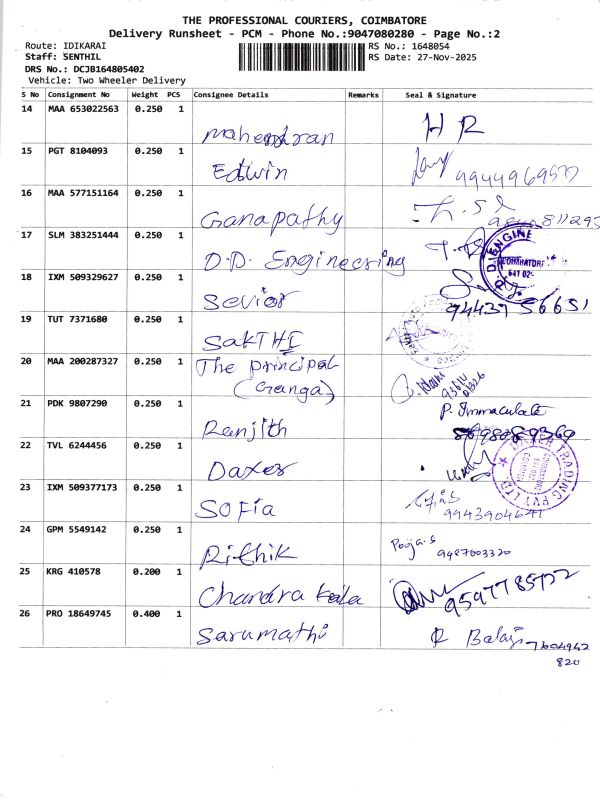 THE PROFESSIONAL COURIERS, COIMBATORE
Delivery Runsheet - PCM - Phone No.:9047080280 - Page No.:2
Route: IDIKARAI
Staff: SENTHIL
DRS No.: DCJB164805402
Vehicle: Two Wheeler Delivery
RS No.: 1648054
RS Date: 27-Nov-2025
S No Consignment No Weight PCS Consignee Details Remarks Seal & Signature
14 MAA 653022563 0.250 1
Mahendran H R
15 PGT 8104093 0.250 1
Edwin
16 MAA 577151164 0.250 1
Ganapathy
17 SLM 383251444 0.250 1
D.D. Engineering
18 IXM 509329627 0.250 1
Sevior
19 TUT 7371680 0.250 1
SAKTHI
20 MAA 200287327 0.250 1
The principal
(Ganga)
21 PDK 9807290 0.250 1
Ranjith P. Immaculate
22 TVL 6244456 0.250 1
Daxer
23 IXM 509377173 0.250 1
SOFia
24 GPM 5549142 0.250 1
Rithik Pooja.S 9487003320
25 KRG 410578 0.200 1
Chandra kala
26 PRO 18649745 0.400 1
Sarumathi R Balaji 7604942
820